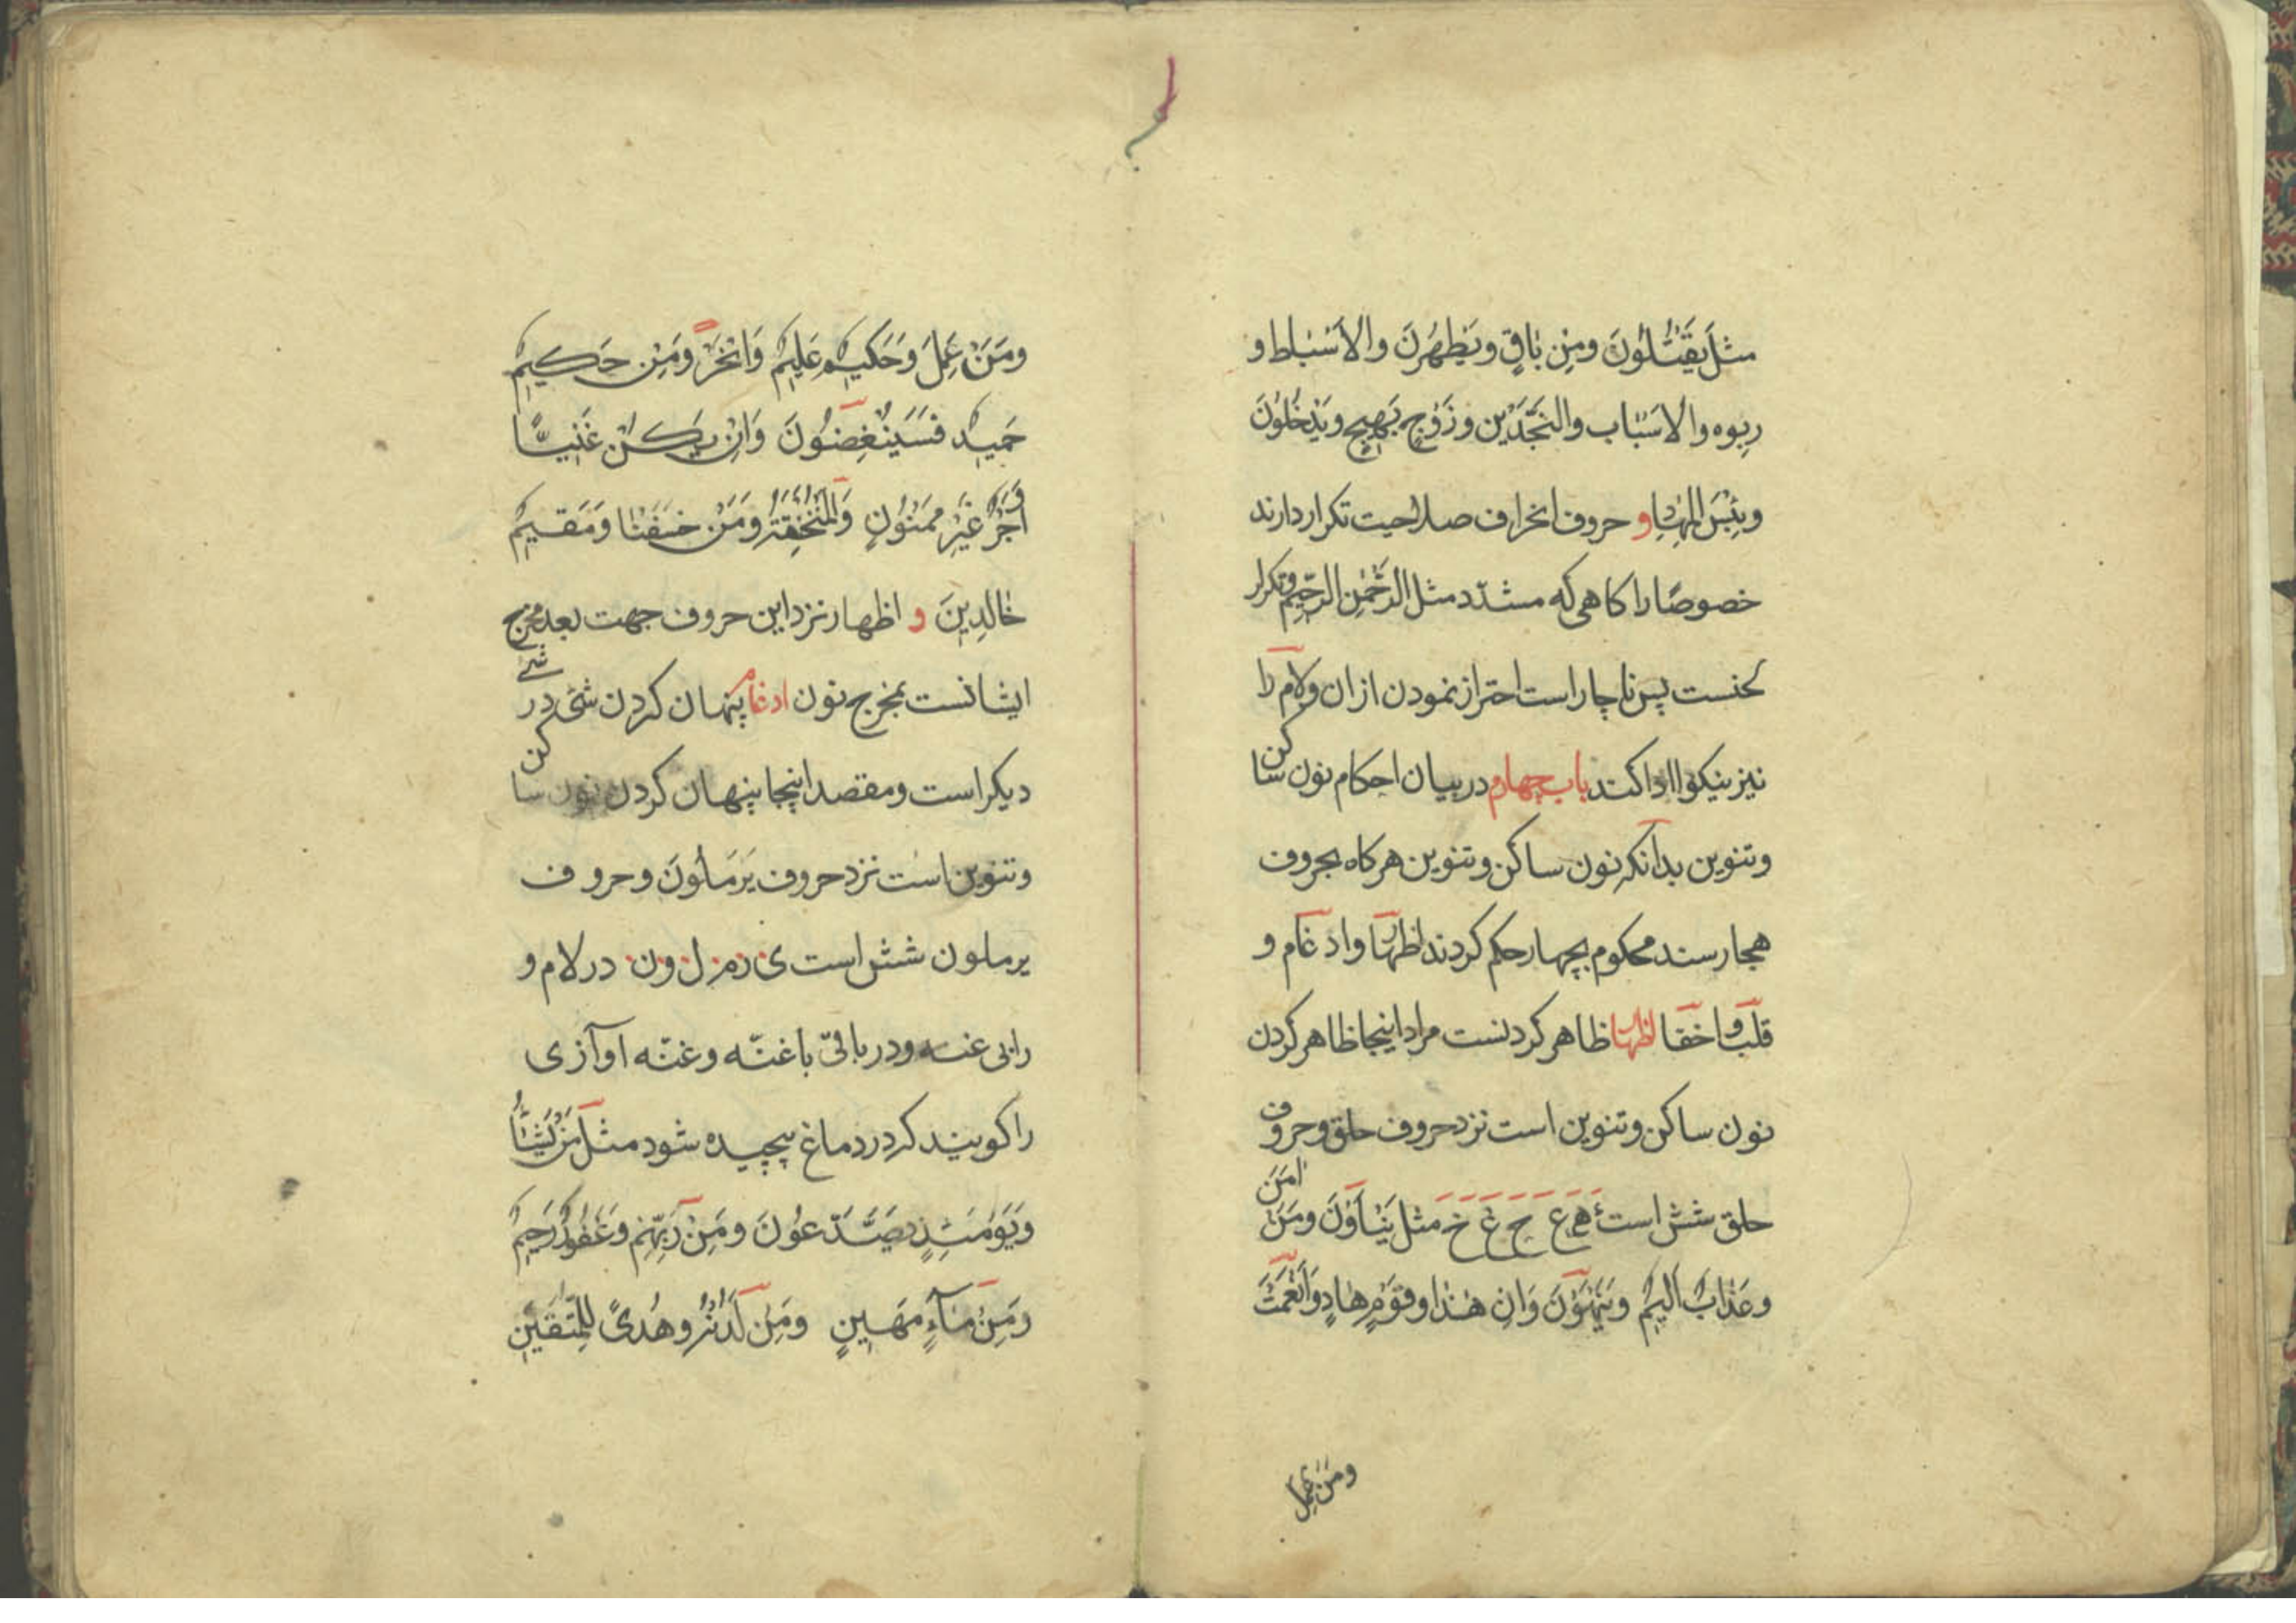 مثل یَقتُلُونَ ومِن بٰاقٍ ویَطهُرنَ والاَسْبٰاط و
رِبوه والاَسْبٰاب والنَجّدَین وزَوْجٍ بَهیجٍ ویَدْخُلُونَ
وبِئسَ المِهٰاد و حروف انحراف صلاحیت تکرار دارند
خصوصًا را کاهی که مشدّد مثل الرَّحْمٰنِ الرَّحِیم وتکرار
لحنست پس ناچار است احتراز نمودن از ان ولام را
نیز نیکو ادا کند باب چهارم در بیان احکام نون ساکن
وتنوین بدانکه نون ساکن وتنوین هرکاه بحروف
هجا رسند محکوم بچهار حکم کردند اظهار وادغام و
قلب واخفا اظهار ظاهر کردنست مراد اینجا ظاهر کردن
نون ساکن وتنوین است نزد حروف حلق وحروف
حلق شش است ء ه ع ح غ خ مثل یَنْاَوْنَ ومَنْ اٰمَنَ
وعَذٰابٌ اَلیمٌ ویَنْهَوْنَ وَاِن هٰذا وقَوْمٍ هٰادٍ واَنْعَمْتَ
ومَن عَمِلَ
ومَنْ عَمِلَ وَحَکیمٌ عَلیمٌ وَانْحَرْ ومِن حَکیمٍ
حَمیدٍ فَسَیُنْغِضُونَ وَاِنْ یَکُنْ غَنیًّا
اَجْرٌ غَیْرُ مَمْنُونٍ وَالمُنْخَنِقَةُ ومَنْ خَسَفْنٰا وَمُقیمٌ
خٰالِدِینَ و اظهار نزد این حروف جهت بعد مخرج
ایشانست بمخرج نون ادغام پنهان کردن شئ در شئ
دیکر است ومقصد اینجا پنهان کردن نون ساکن
وتنوین است نزد حروف یَرمَلُونَ وحروف
یرملون شش است ی ر م ل و ن در لام و
را بی غنه ودر باقی با غنّه وغنّه اوآزی
را کویند کر در دماغ پیچیده شود مثل مَنْ یَشٰآءُ
وَیَوْمَئِذٍ یَصَّدَّعُونَ ومِنْ رَبِّهِم وَغَفُورٌ رَحیمٌ
ومِنْ مٰآءٍ مَهینٍ ومِن لَدُنْهُ وهُدیً لِلْمُتَّقینَ